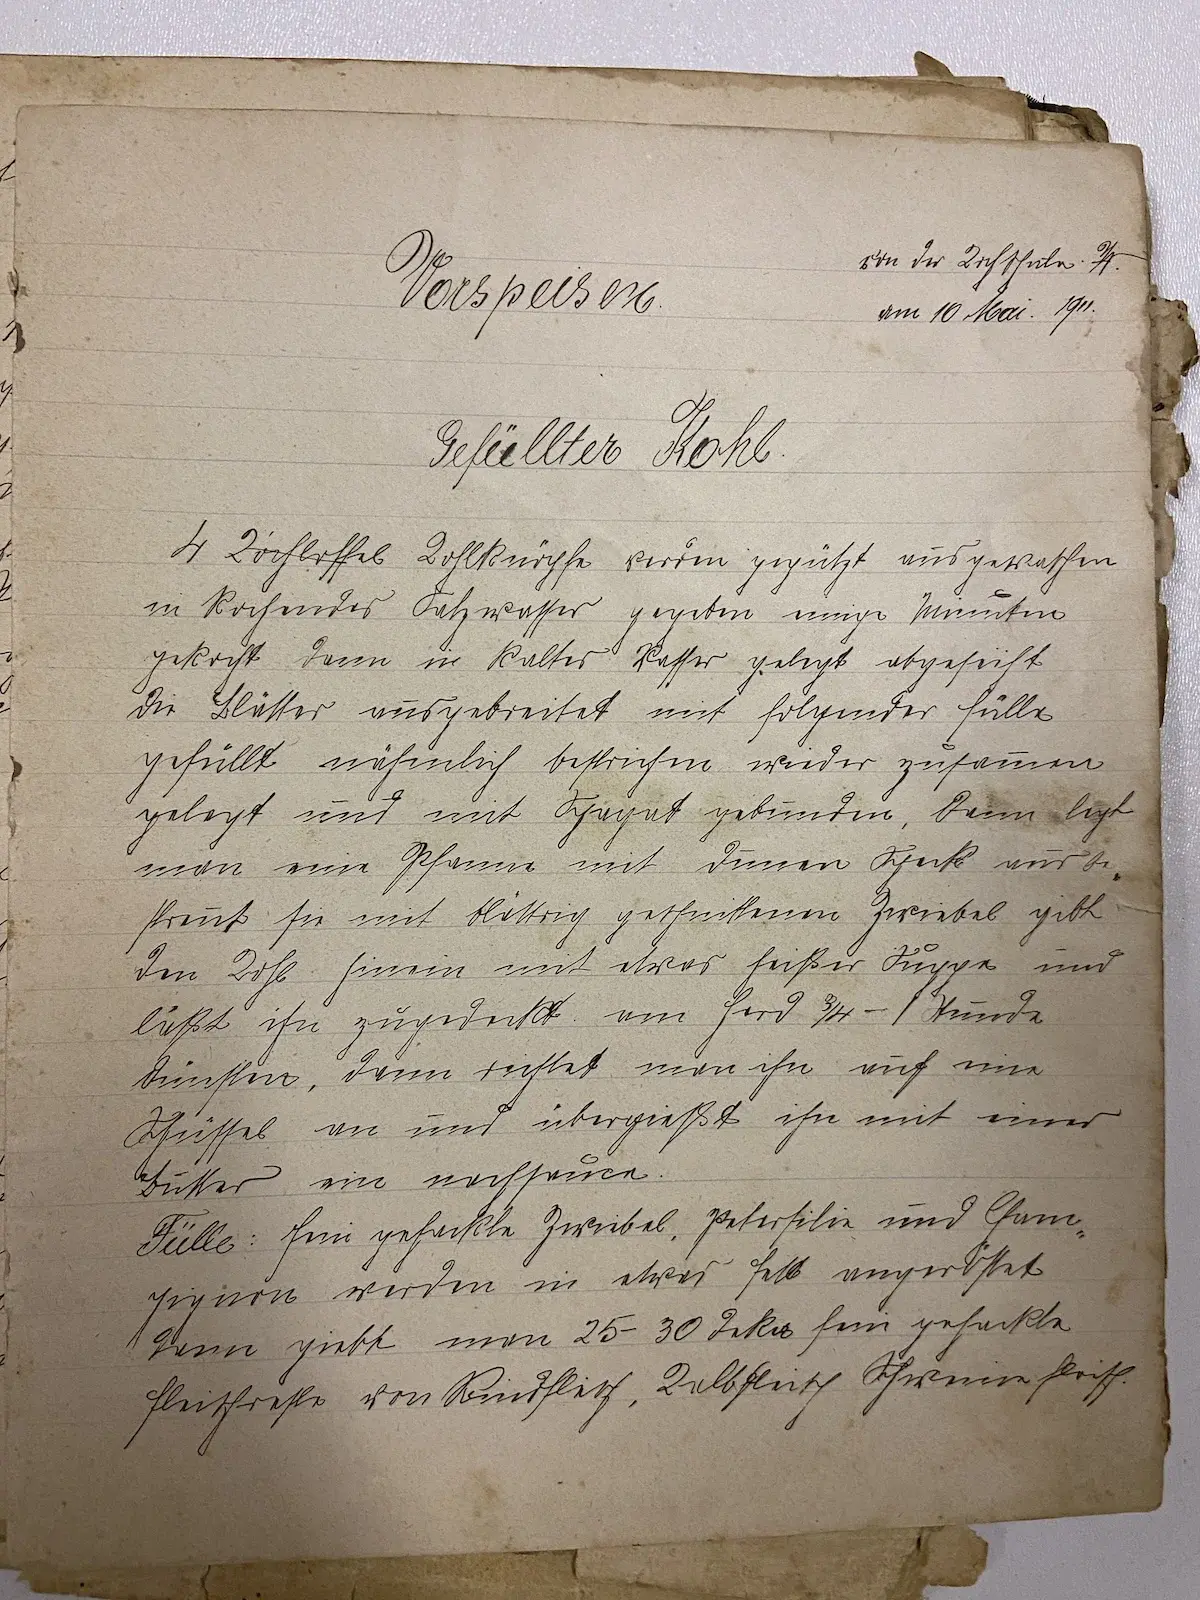 Vorspeisen.
von der Kochschule
am 10 Mai. 1911.
Gefüllter Kohl.
4 Kohlköpfe werden geputzt ausgewaschen
in kochendes Salzwasser gegeben einige Minuten
gekocht dann in kaltes Wasser gelegt abgeseiht
die Blätter ausgebreitet mit folgender Fülle
gefüllt nähmlich bestrichen wieder zusammen
gelegt und mit Spagat gebunden, dann legt
man eine Pfanne mit dünnen Speck aus be„
streut sie mit blättrig geschnittenen Zwiebel gibt
den Kohl hinein mit etwas heißer Suppe und
läßt ihn zugedeckt am Herd 3/4 – 1 Stunde
dünsten, dann richtet man ihn auf eine
Schüssel an und übergießt ihn mit einer
Butter ein machsauce.
Fülle: Fein gehackte Zwiebel, Petersilie und Cham„
pignon werden in etwas Fett angeröstet
dann giebt man 25– 30 deka fein gehackte
Fleischreste von Rindfleisch, Kalbfleisch Schweinefleisch.